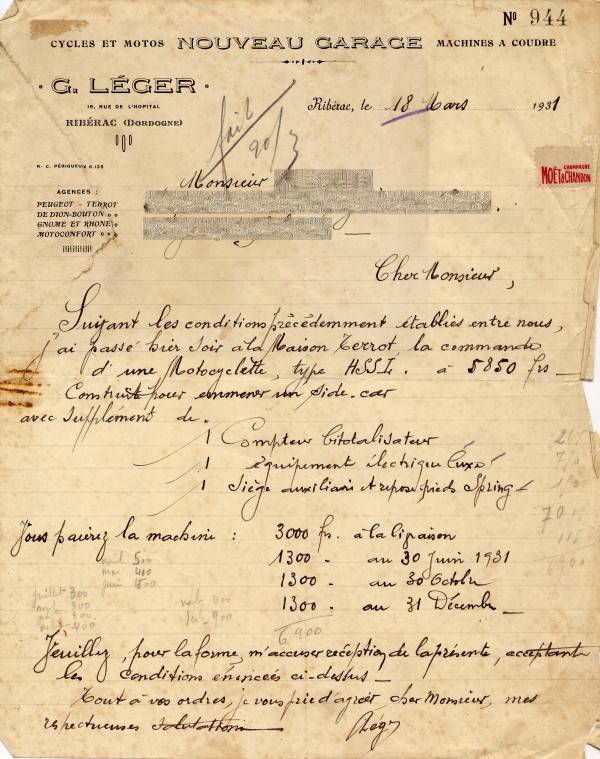 No 944
CYCLES ET MOTOS NOUVEAU GARAGE MACHINES A COUDRE
G. LÉGER
19, RUE DE L'HOPITAL
RIBÉRAC (DORDOGNE)
Ribérac, le 18 Mars 1931
fait
20/3
R. C. PÉRIGUEUX 6.125
CHAMPAGNE
MOËT & CHANDON
Monsieur
AGENCES :
PEUGEOT - TERROT
DE DION-BOUTON
GNOME ET RHONE
MOTOCONFORT
Cher Monsieur,
Suivant les conditions précédemment établies entre nous,
j'ai passé hier soir à la Maison Terrot la commande
d'une Motocyclette, type HSSI. à 5850 frs
Construite pour emmener un side-car
avec supplément de.
1 Compteur totalisateur
1 équipement électrique luxe
1 Siège auxiliaire et repose pieds Spring
Vous paierez la machine : 3000 frs. à la livraison
1300 - au 30 Juin 1931
1300 - au 30 Octobre
1300 - au 31 Décembre
avril 500
mai 400
juin
juillet 300
300
300
400
400
900
6900
Veuillez, pour la forme, m'accuser réception de la présente, acceptant
les conditions énencées ci-dessus
Tout à vos ordres, je vous prie d'agréer, cher Monsieur, mes
respectueuses salutations
Léger